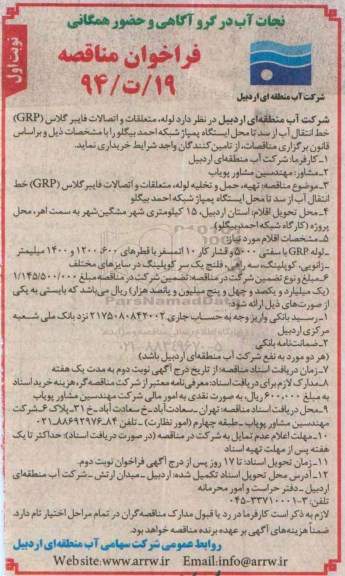 نجات آب در گرو آگاهی و حضور همگانی
نوبت اول
فراخوان مناقصه
۹۴/ت/۱۹
شرکت آب منطقه ای اردبیل
شرکت آب منطقه‌ای اردبیل در نظر دارد لوله، متعلقات و اتصالات فایبر گلاس (GRP)
خط انتقال آب از سد تا محل ایستگاه پمپاژ شبکه احمد بیگلو را با مشخصات ذیل و براساس
قانون برگزاری مناقصات، از تامین کنندگان واجد شرایط خریداری نماید.
۱-کارفرما: شرکت آب منطقه‌ای اردبیل
۲-مشاور: مهندسین مشاور پویاب
۳-موضوع مناقصه: تهیه، حمل و تخلیه لوله، متعلقات و اتصالات فایبر گلاس (GRP) خط
انتقال آب از سد تا محل ایستگاه پمپاژ شبکه احمد بیگلو
۴-محل تحویل اقلام: استان اردبیل، ۱۵ کیلومتری شهر مشگین‌شهر به سمت اهر، محل
پروژه (کارگاه شبکه احمدبیگلو)
۵-مشخصات اقلام مورد نیاز:
-لوله GRP با سفتی ۵۰۰۰ و فشار کار ۱۰ اتمسفر با قطرهای ۶۰۰، ۱۲۰۰ و ۱۴۰۰ میلیمتر
-زانویی، کوپلینگ، سه راهی، فلنج یک سر کوپلینگ در سایزهای مختلف
۶-مبلغ و نوع تضمین شرکت در مناقصه: تضمین شرکت در مناقصه مبلغ ۱/۱۴۵/۵۰۰/۰۰۰
(یک میلیارد و یکصد و چهل و پنج میلیون و پانصد هزار) ریال می‌باشد که بایستی به یکی
از صورت‌های ذیل ارائه شود:
۱-رسید بانکی واریز وجه به حساب جاری ۲۱۷۵۰۸۰۸۴۲۰۰۲ نزد بانک ملی شعبه
مرکزی اردبیل
۲-ضمانت‌نامه بانکی
(هر دو مورد به نفع شرکت آب منطقه‌ای اردبیل باشد)
۷-زمان دریافت اسناد مناقصه: از تاریخ درج آگهی نوبت دوم به مدت یک هفته
۸-مدارک لازم برای دریافت اسناد: معرفی‌نامه معتبر از شرکت مناقصه‌گر، هزینه خرید اسناد
به مبلغ ۶۰۰,۰۰۰ ریال، به صورت نقدی به امور مالی شرکت مهندسین مشاور پویاب
۹-محل دریافت اسناد مناقصه: تهران-سعادت‌آباد-خ سعادت آباد-خ ۳۱-پلاک ۶-شرکت
مهندسین مشاور پویاب-طبقه چهارم (امور نظارت)-تلفن ۸۴-۸۸۶۹۲۹۷۶-۰۲۱
۱۰-مهلت اعلام عدم تمایل به شرکت در مناقصه (در صورت دریافت اسناد): حداکثر تا یک
هفته پس از مهلت تهیه اسناد
۱۱-زمان تحویل اسناد: تا ۱۷ روز پس از درج آگهی فراخوان نوبت دوم.
۱۲-آدرس محل تحویل اسناد تکمیل شده: اردبیل-میدان ارتش-شرکت آب منطقه‌ای
اردبیل-دفتر حراست و امور محرمانه
تلفن: ۳-۳۳۷۱۰۰۰۱-۰۴۵
لازم به ذکر است کارفرما در رد یا قبول مدارک مناقصه‌گران در تمام مراحل اختیار تام دارد.
ضمناً هزینه‌های آگهی بر عهده برنده مناقصه خواهد بود.
روابط عمومی شرکت سهامی آب منطقه‌ای اردبیل
Website:www.arrw.ir Email:info@arrw.ir